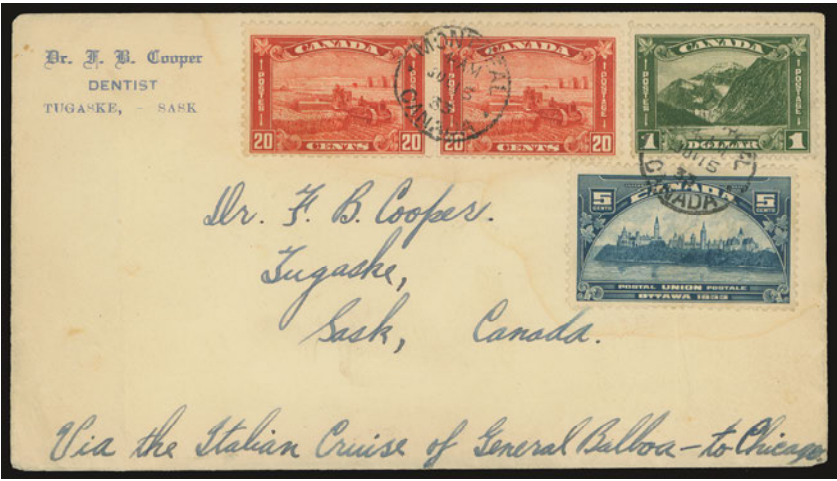 Dr. F. B. Cooper
DENTIST
TUGASKE, - SASK
CANADA
POSTES POSTAGE
20 CENTS 20
CANADA
POSTES POSTAGE
20 CENTS 20
CANADA
POSTES POSTAGE
1 DOLLAR 1
MONTREAL
AM
15
CANADA
15
CANADA
CANADA
5 CENTS
5 CENTS
POSTAL UNION POSTALE
OTTAWA 1933
Dr. F. B. Cooper.
Tugaske,
Sask, Canada.
Via the Italian Cruise of General Balboa - to Chicago.